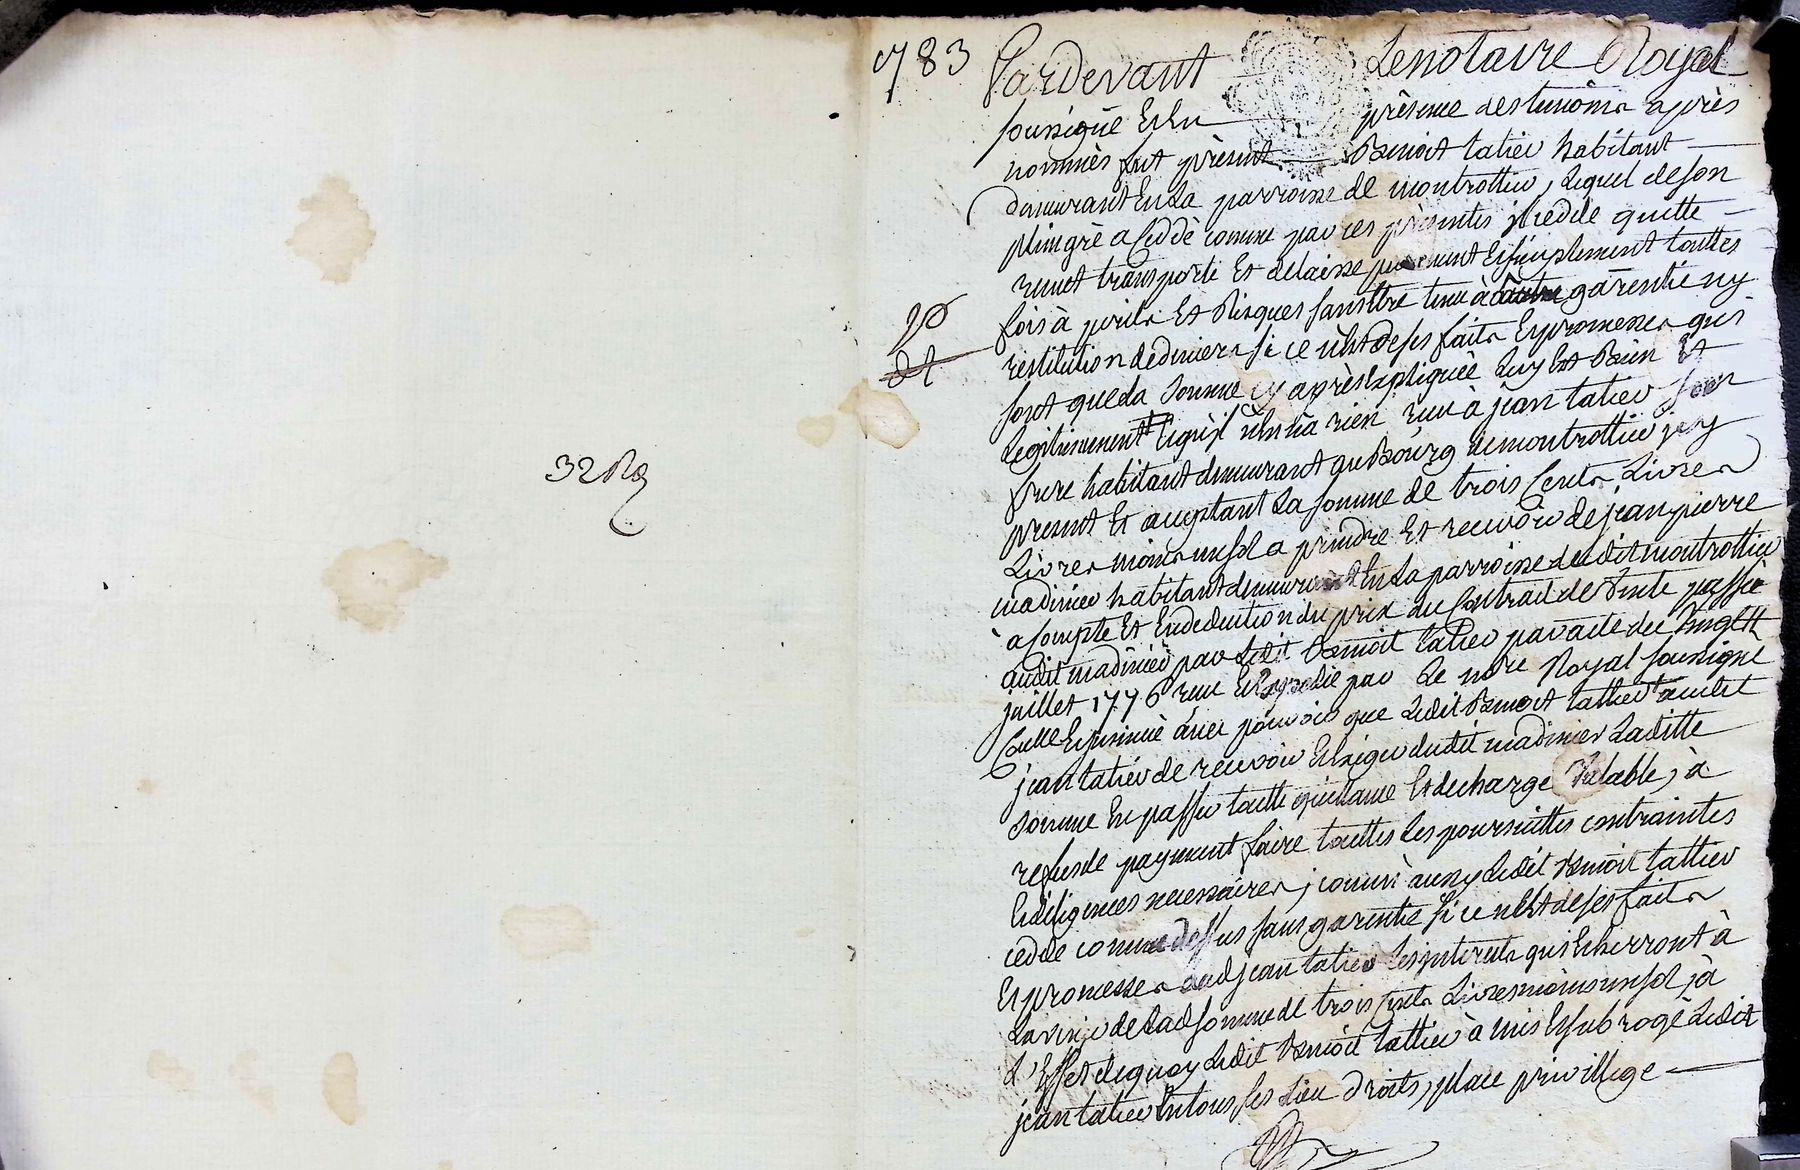 1783
Pardevant Le notaire Royal
soussigné Et En présence des temoins après
nommés fut présent Benoit tatier habitant
demurant En La parroisse de montrottier, Lequel de son
plein gré a Ceddé comme par ces présentes jl cedde quitte
remet transporte Et delaisse purement Et simplement touttes
fois à perils Et Risques sans Etre tenu à garentie ny
restitution de deniers si ce n'est de ses faits Et promesses qui
sont que La Somme cy après Expliquée Luy Est Bien Et
Legitimement Et qu'jl n'en a rien reçu à jean tatier son
frere habitant demeurant au Bourg de montrottier jcy
present Et acceptant La somme de trois Cents Livres
Livres moins un sol a prendre Et recevoir de jean pierre
madinier habitant demeurant En La parroisse dudit montrottier
à Compte Et En deduction du prix du Contrat de Vente passé
audit madinier par Ledit Benoit tatier par acte du Vingt
juillet 1776 reçu Et Expedié par Le notre Royal soussigné
Controllé Et jnsinué avec pouvoir que Ledit Benoit tattier audit
jean tatier de recevoir Et Exiger dudit madinier Laditte
Somme En passer toutte quittance Et decharge Valable, à
refus de payement faire touttes Les poursuittes contraintes
Et diligences necessaires, comme aussy Ledit Benoit tattier
cedde comme dessus sans garentie si ce n'Est de ses faits
Et promesses aud jean tatier Les jnterets qui Echerront à
L'avenir de Lad somme de trois Cents Livres moins un sol, à
L'Effet de quoy Ledit Benoit tattier à mis Et subrogé Ledit
jean tatier En tous ses Lieu droits, place privillége
32 Rg